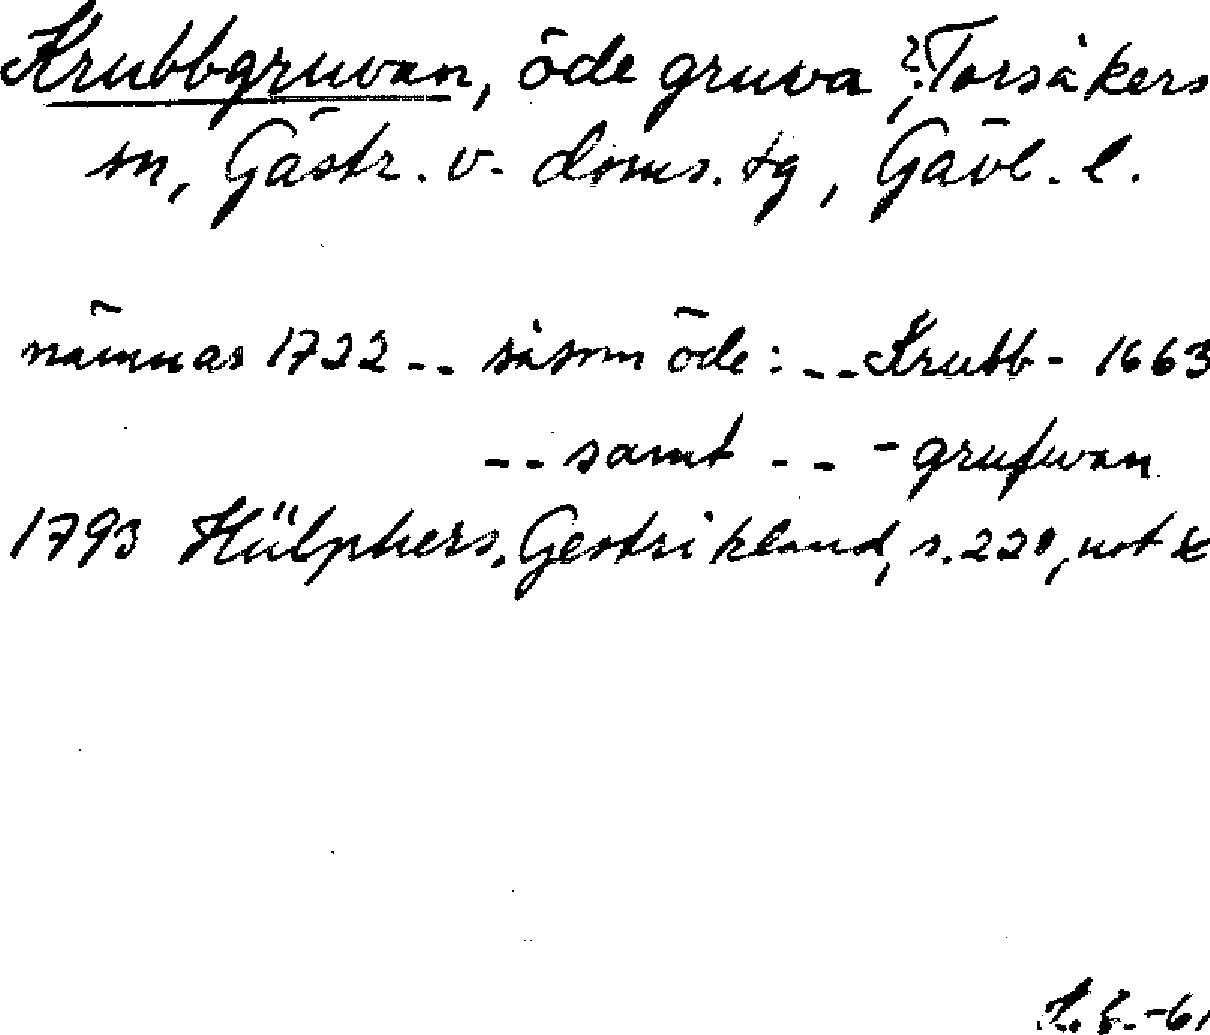 Krubbgruvan, öde gruva, ? Torsåkers
sn, Gästr. v. doms. tg, Gävl. l.
nämnas 1722 -- såsom öde: -- Krubb- 1663
-- samt -- -grufwan
1793 Hülphers, Gestrikland, s. 220, not